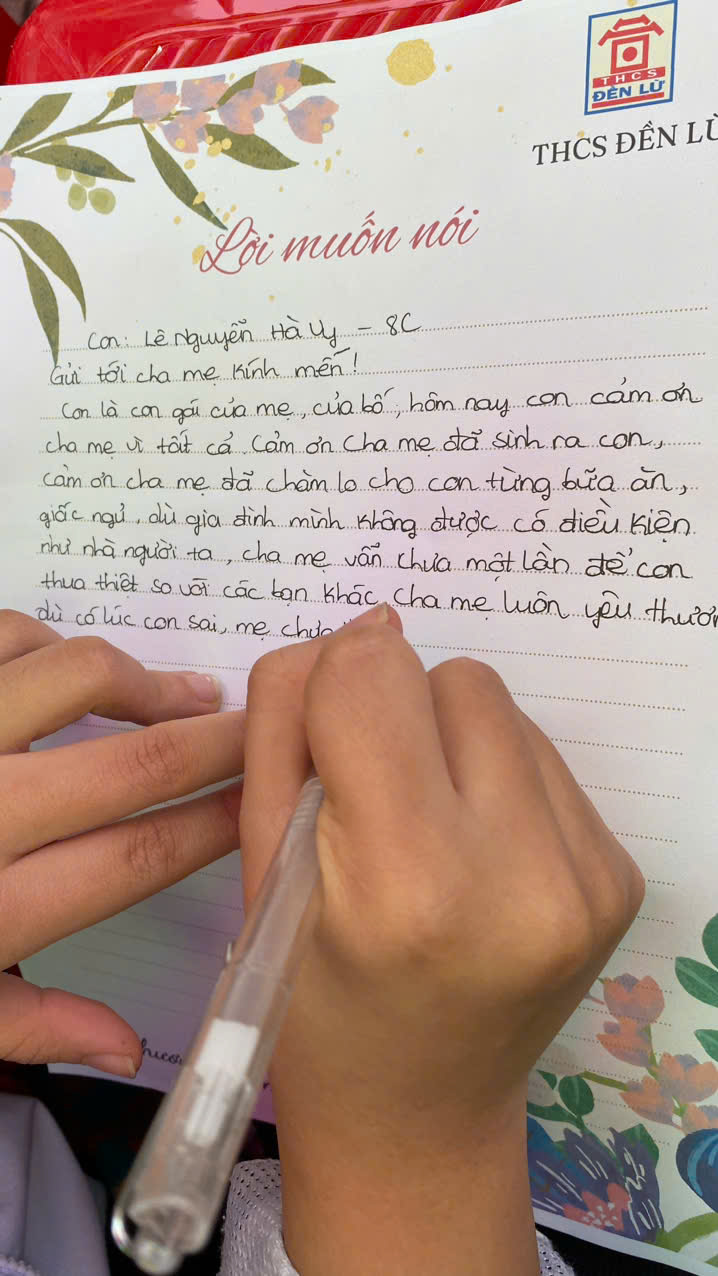 THCS
ĐỀN LỪ
THCS ĐỀN LỪ
Lời muốn nói
Con: Lê Nguyễn Hà Vy - 8C
Gửi tới cha mẹ kính mến!
Con là con gái của mẹ, của bố, hôm nay con cảm ơn
cha mẹ vì tất cả. Cảm ơn cha mẹ đã sinh ra con,
cảm ơn cha mẹ đã chăm lo cho con từng bữa ăn,
giấc ngủ, dù gia đình mình không được có điều kiện
như nhà người ta, cha mẹ vẫn chưa một lần để con
thua thiệt so với các bạn khác, cha mẹ luôn yêu thươn
dù có lúc con sai, mẹ